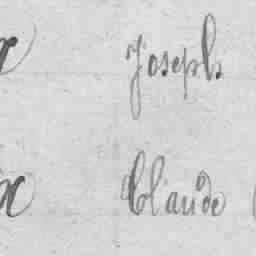 Joseph
Claude